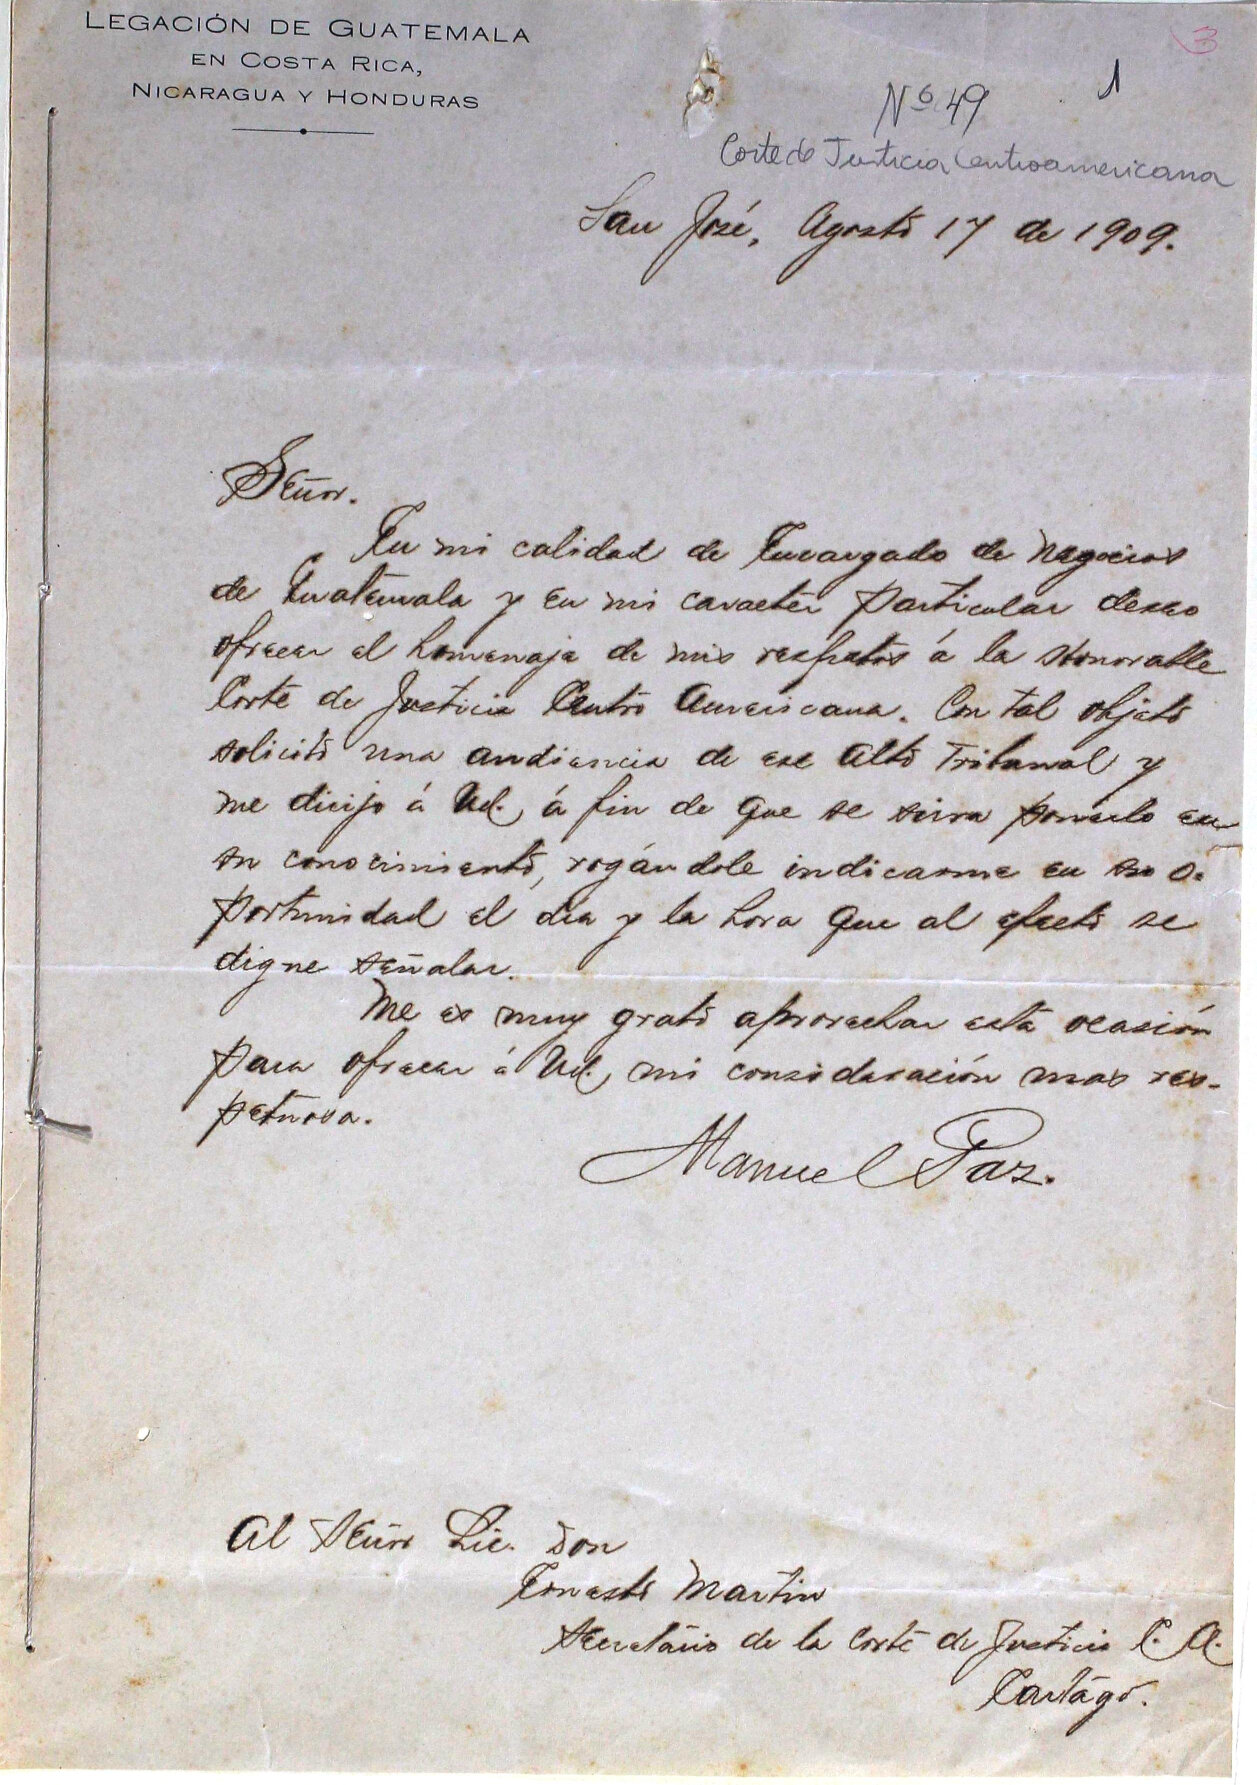 LEGACIÓN DE GUATEMALA
EN COSTA RICA,
NICARAGUA Y HONDURAS
3
1
Nº 49
Corte de Justicia Centroamericana
San José, Agosto 17 de 1909.
Señor.
En mi calidad de Encargado de Negocios
de Guatemala y en mi caracter particular deseo
ofrecer el homenaje de mis respetos á la Honorable
Corte de Justicia Centro Americana. Con tal objeto
solicito una audiencia de ese Alto Tribunal y
me dirijo á Ud. á fin de que se sirva ponerlo en
su conocimiento, rogándole indicarme en su o-
portunidad el día y la hora que al efecto se
digne señalar.
Me es muy grato aprovechar esta ocasión
para ofrecer á Ud. mi consideración mas res-
petuosa.
Manuel Paz.
Al Señor Lic. Don
Ernesto Martin
Secretario de la Corte de Justicia C. A.
Cartago.